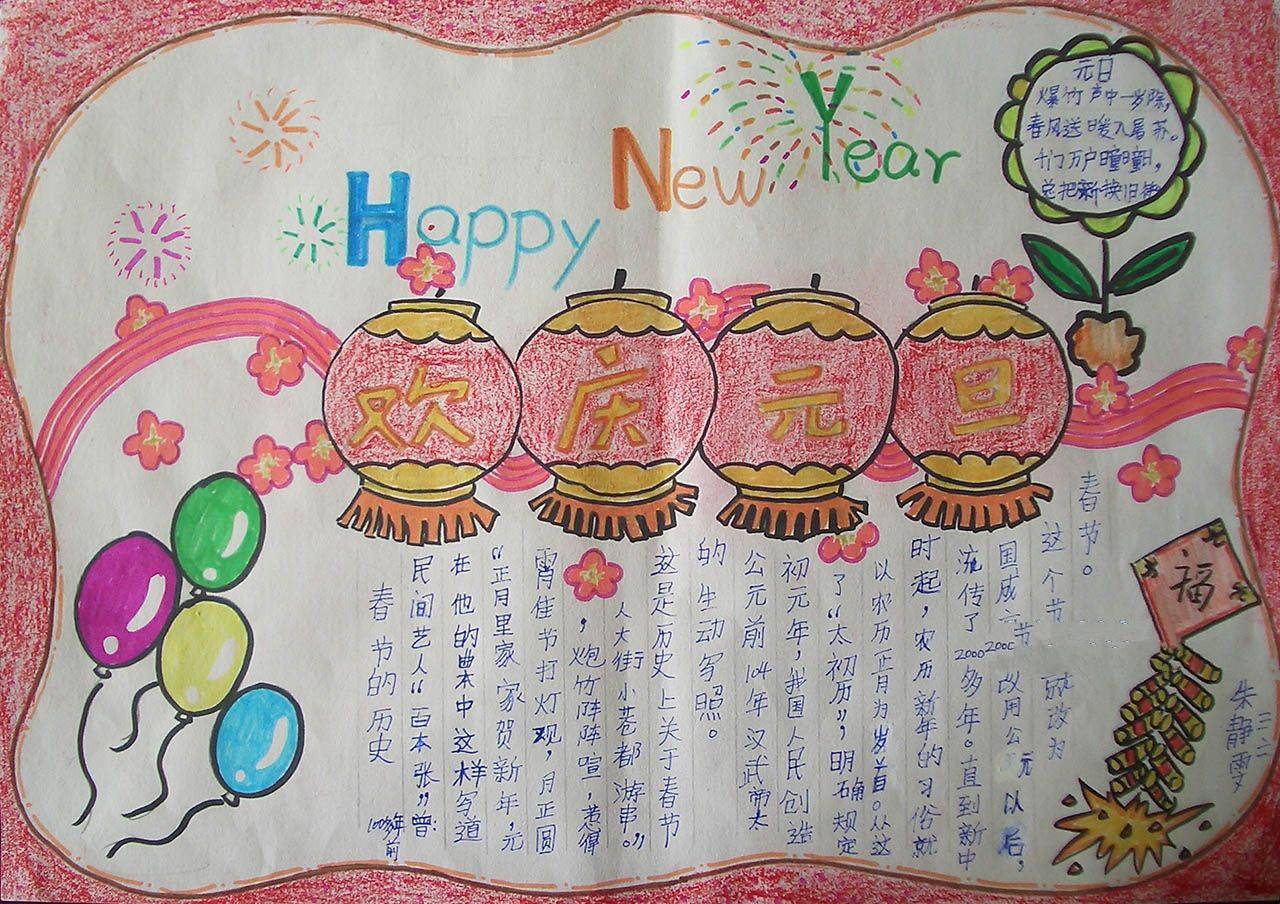 Happy New Year
元日
爆竹声中一岁除，
春风送暖入屠苏。
千门万户瞳瞳日，
总把新换旧
欢庆元旦
福
春节的历史 100多年前
民间艺人“百本张”曾：
在他的曲本中这样写道
“正月里家家贺新年，元
宵佳节打灯观，月正圆
，炮竹阵阵喧，惹得
人人大街小巷都游串。”
这是历史上关于春节
的生动写照。
公元前104年汉武帝太
初元年，我国人民创造
了“太初历”，明确规定
以农历正月为岁首。从这
时起，农历新年的习俗就
流传了2000多年。直到新中
国成 节 改用公元以后，
这个节 就改为
春节。
朱静雯